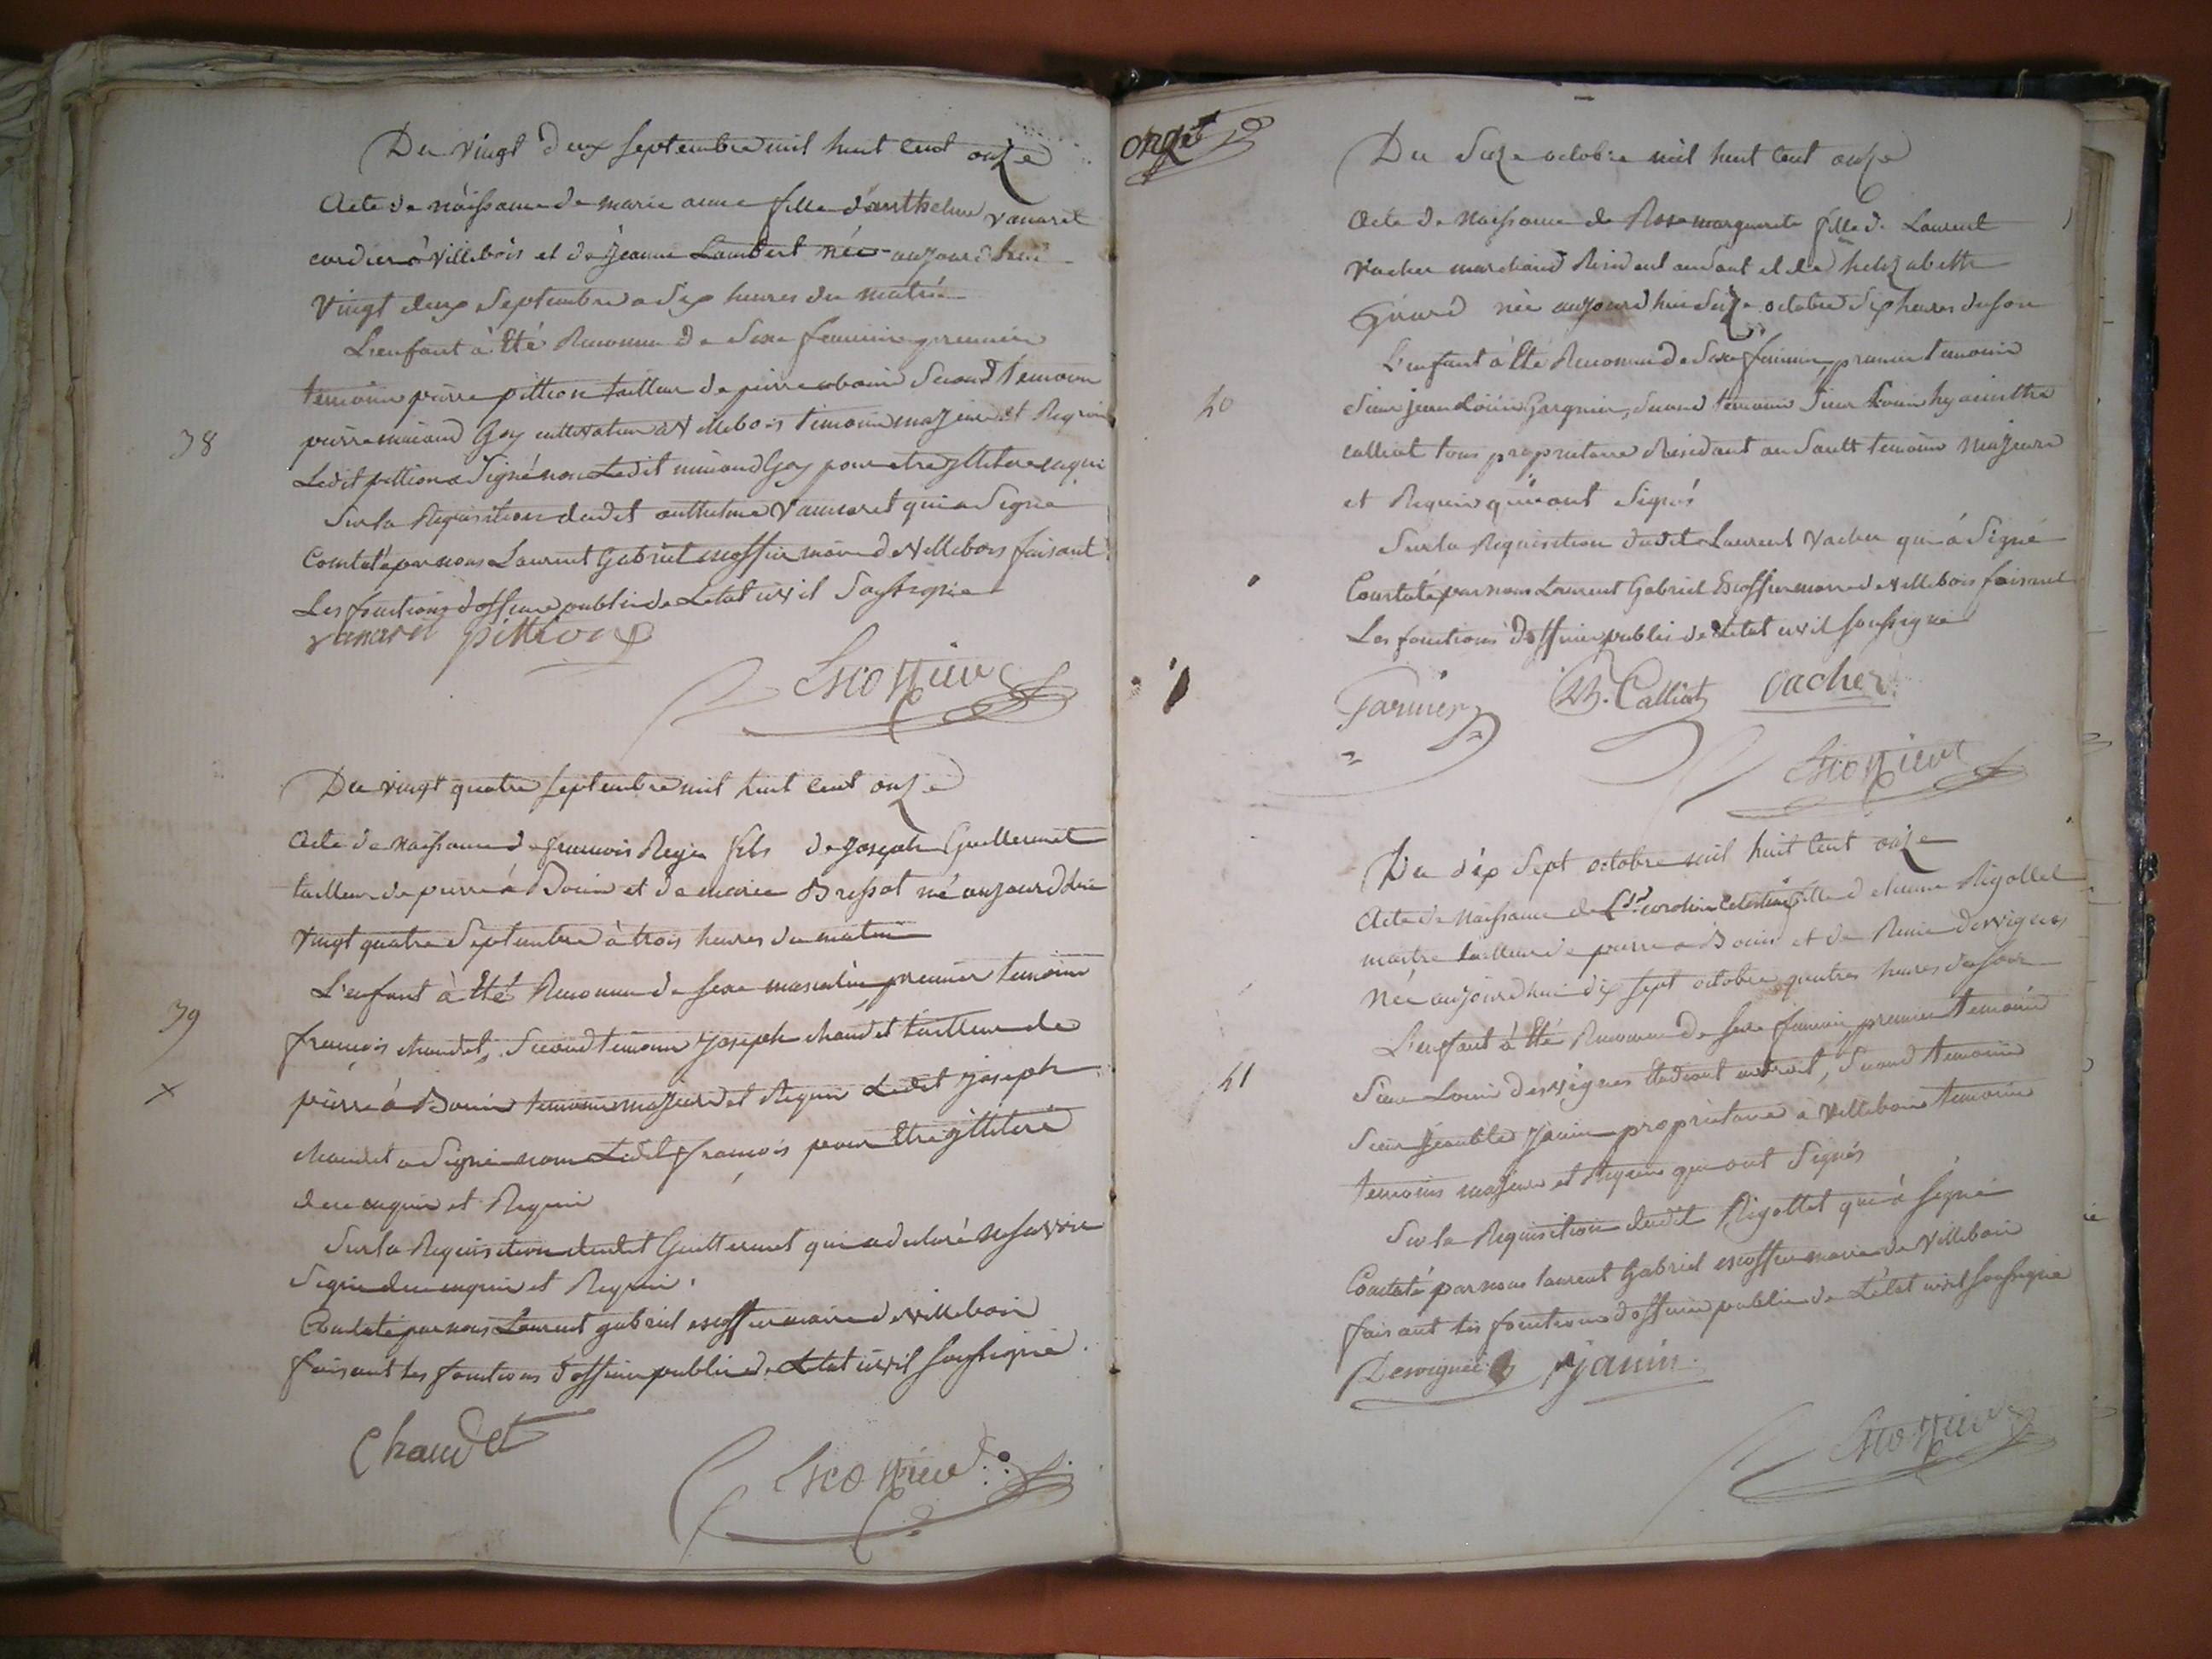 Du vingt deux septembre mil huit cent onze
Acte de naissance de marie anne fille d'anthelme vanaret
cordier à villebois et de jeanne Lambert née aujourd'hui
vingt deux septembre a six heures du matin
L'enfant à été Reconnu de sexe feminin premier
temoin pierre pittion tailleur de pierre a bouis second temoin
pierre minand Goy cultivateur à villebois temoin majeur et Requis
38
Ledit pittion a signé non Ledit minand Goy pour etre illiteré enquis
Sur la Requisition dudit anthelme Vanaret qui a signé
Constaté par nous Laurent Gabriel escoffier maire de villebois faisant
Les fonctions d'officier public de L'etat civil soussigné
vanaret pittion
Escoffier
Du vingt quatre septembre mil huit cent onze
Acte de naissance de francois Regis fils de joseph Guillermet
tailleur de pierre à Bouis et de marie Bressot né aujourdhui
vingt quatre septembre à trois heures du matin
L'enfant à été Reconnu de sexe masculin premier temoin
39
francois chaudet, second temoin joseph chaudet tailleur de
x
pierre à Bouis temoin majeur et Requis Ledit joseph
chaudet a signé non Ledit francois pour etre illiteré
de ce enquis et Requis
Sur la Requisition dudit Guillermet qui a declaré ne savoir
signer de ce enquis et Requis.
Constaté par nous Laurent gabriel escoffier maire de villebois
faisant les fonctions d'officier public de L'etat civil soussigné.
Chaudet
Escoffier
onze
Du seize octobre mil huit cent onze
Acte de naissance de Rose marguerite fille de Laurent
vacher marchand Resident au Sault et de helizabeth
née aujourd'hui seize octobre six heures du soir
L'enfant à été Reconnu de sexe feminin, premier temoin
40
sieur jean Louis Garnier, second temoin sieur Louis hyacinthe
calliat tous proprietaire Residant au Sault temoins majeurs
et Requis qui ont signés
Sur la Requisition dudit Laurent vacher qui à signé
Constaté par nous Laurent Gabriel Escoffier maire de villebois faisant
Les fonctions d'officier public de L'etat civil soussigné
Garnier Calliat vacher
Escoffier
Du dix sept octobre mil huit cent onze
Acte de naissance de caroline Celestine fille d'etienne Rigollet
maitre tailleur de pierre a Bouis et de Renée Desvignes
née aujourdhui dix sept octobre quatres heures du soir
L'enfant à été Reconnu de sexe feminin premier temoin
41
sieur Louis desvignes etudiant en droit, second temoin
sieur janin proprietaire à villebois temoin
temoins majeurs et Requis qui ont signés
Sur la Requisition dudit Rigollet qui à signé
Constaté par nous laurent Gabriel escoffier maire de villebois
faisant les fonctions d'officier public de L'état civil soussigné
Desvignes janin
Escoffier